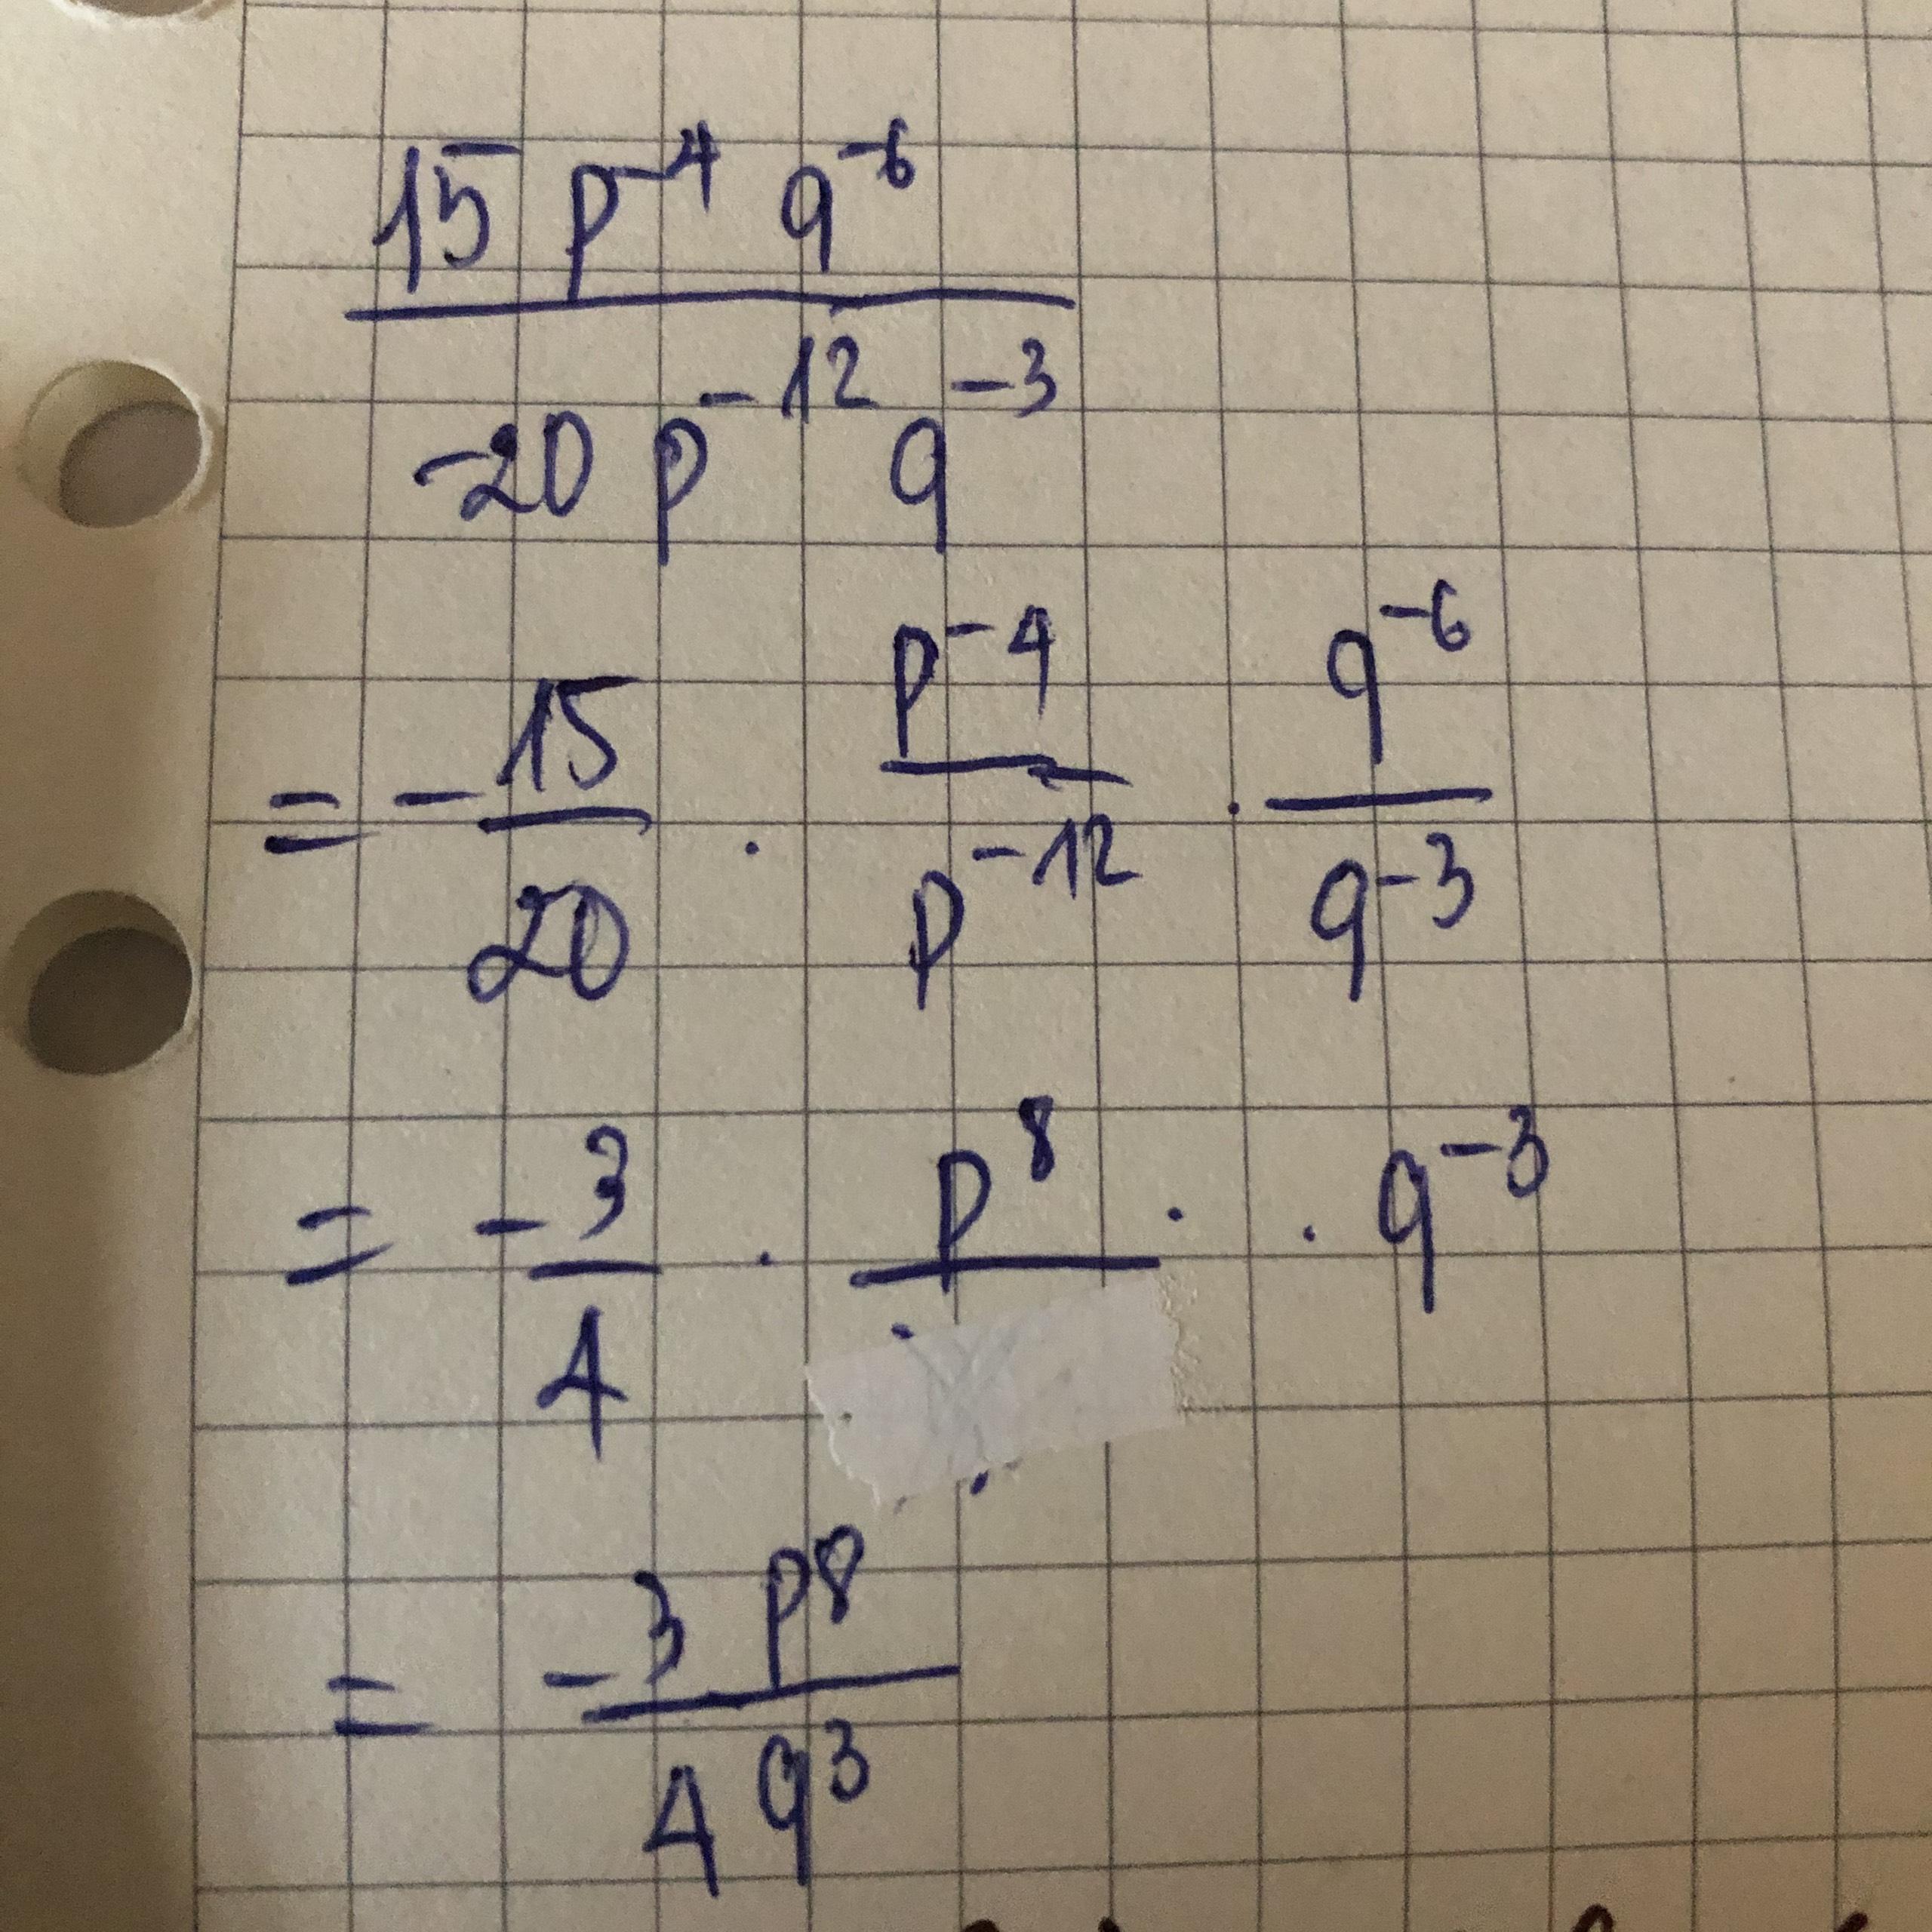 15 p⁻⁴ q⁻⁶
-20 p⁻¹² q⁻³
= - 15/20 · p⁻⁴/p⁻¹² · q⁻⁶/q⁻³
= - 3/4 · p⁸/ · · q⁻³
= - 3 p⁸ / 4 q³